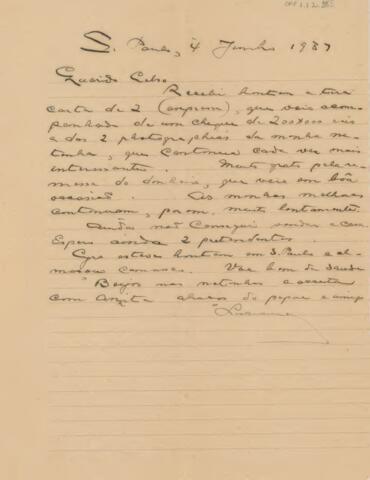 S. Paulo, 4 Junho 1937
Querido Celso
Recebi hontem a tua
carta de 2 (corrente), que veio acom
panhada de um cheque de 200$000 réis
e das 2 photographias da minha ne-
tinha, que continua cada vez mais
interessante. Muito grato pela re-
messa do dinheiro, que veio em bôa
occasião. As minhas melhoras
continuam, porem, muito lentamente.
Ainda não consegui vender a casa
Espero ainda 2 pretendentes.
esteve hontem em S. Paulo e al-
moçou comnosco. Vae bem de saude
Beijos nas netinhas e acceita
com abraços do papae e amigo